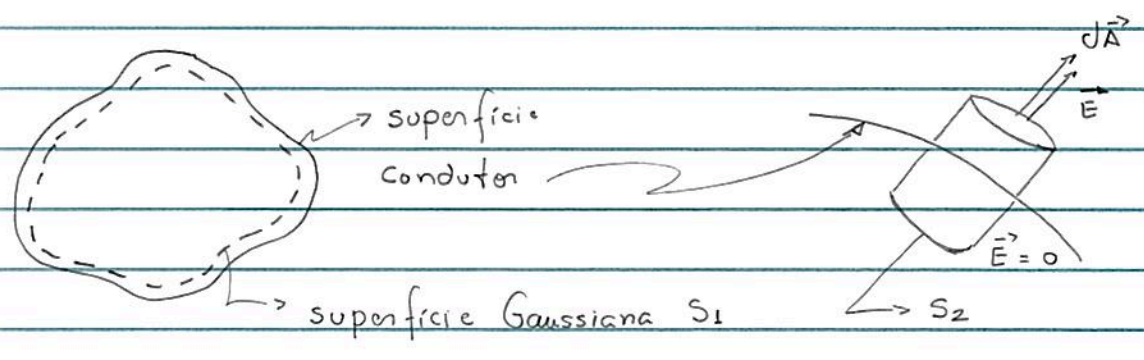 superfície
condutor
superfície Gaussiana S1
dA
E
E = 0
S2